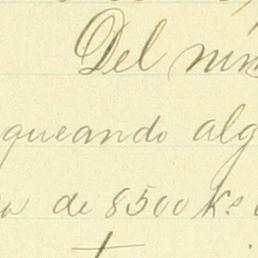 Del
queando alg
de 8500 Ks